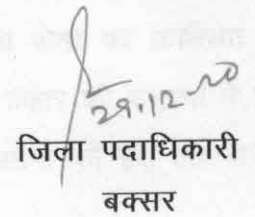 29.12.20
जिला पदाधिकारी
बक्सर